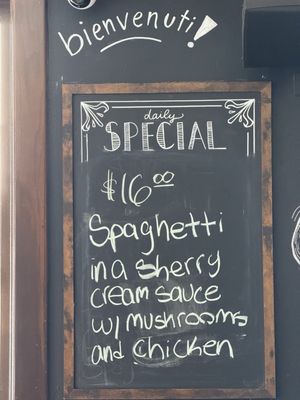 bienvenuti!
daily
SPECIAL
$16.00
Spaghetti
in a Sherry
cream sauce
w/ mushrooms
and Chicken